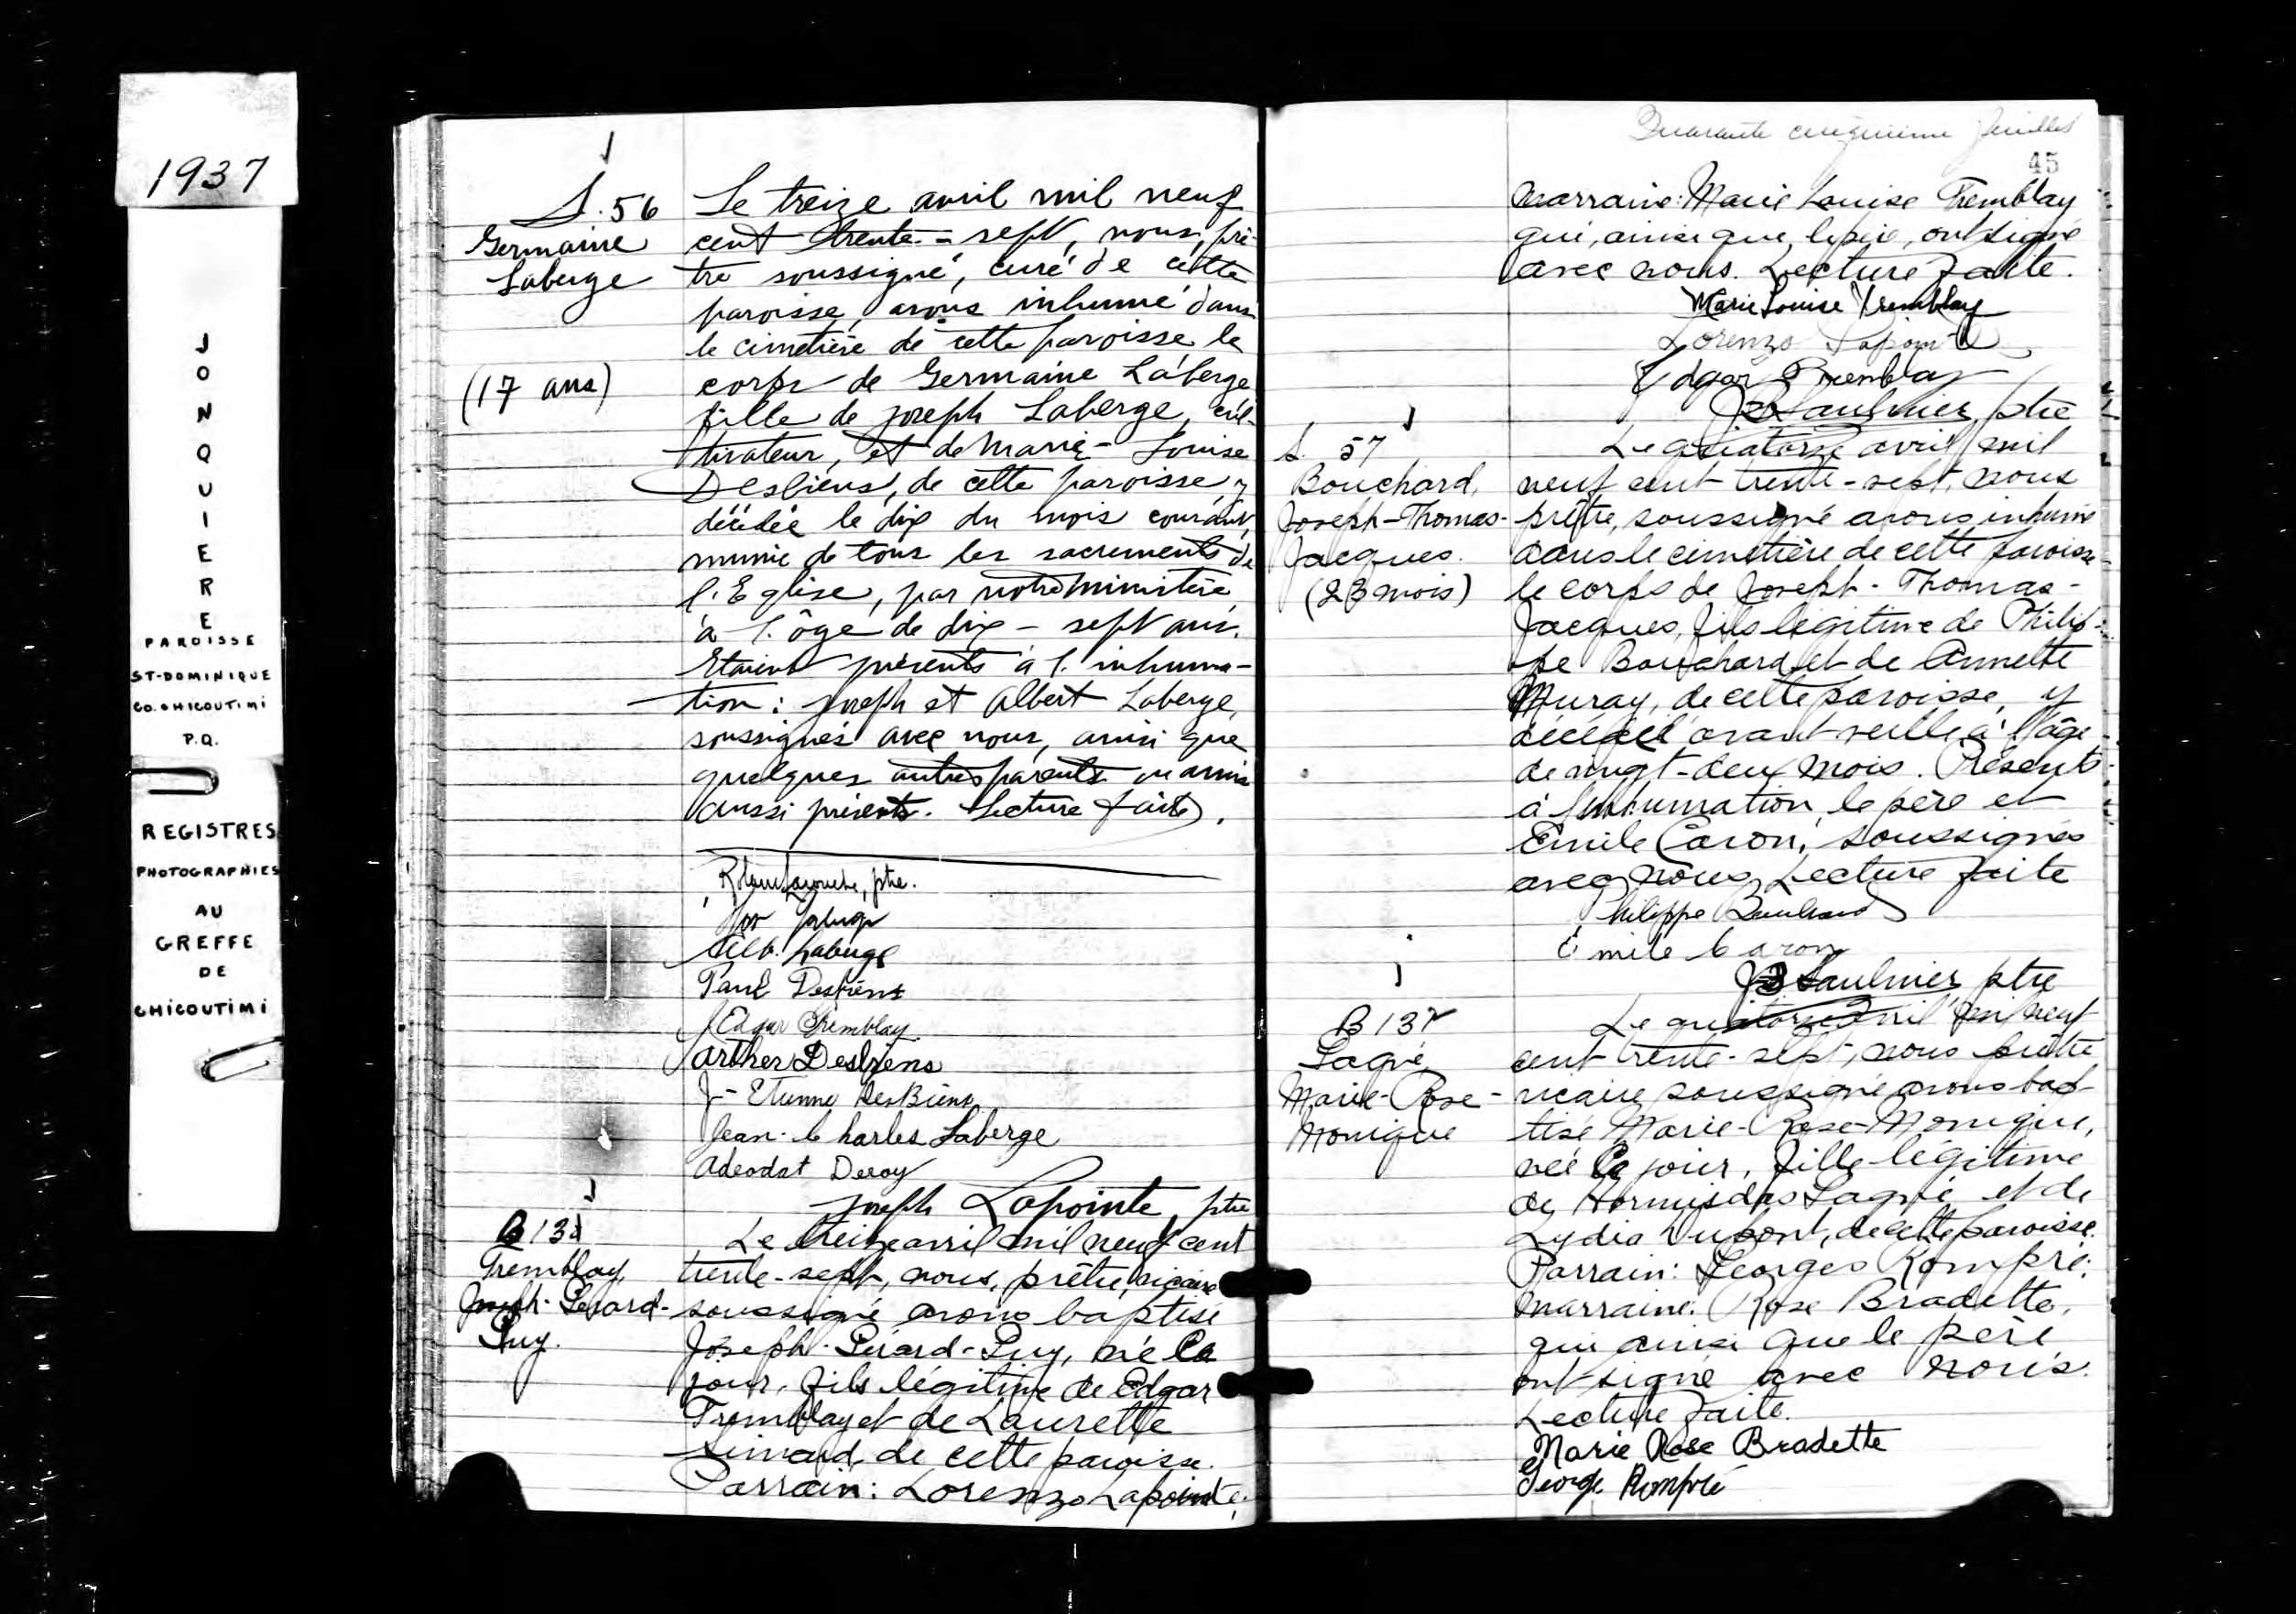 1937
JONQUIERE
PAROISSE
ST-DOMINIQUE
CO. CHICOUTIMI
P.Q.
REGISTRES
PHOTOGRAPHIES
AU
GREFFE
DE
CHICOUTIMI
S. 56
Germaine
Laberge
(17 ans)
Le treize avril mil neuf
cent trente-sept, nous, prê-
tre soussigné, curé de cette
paroisse, avons inhumé dans
le cimetière de cette paroisse le
corps de Germaine Laberge
fille de joseph Laberge, cul-
tivateur, et de Marie-Louise
Desbiens, de cette paroisse, y
décédée le dix du mois courant,
munie de tous les sacrements de
l'Eglise, par notre ministère,
à l'âge de dix-sept ans.
Etaient présents à l'inhuma-
tion: joseph et Albert Laberge,
soussignés avec nous, ainsi que
quelques autres parents ou amis
aussi présents. Lecture faite.
ptre.
Jos Laberge
Alb. Laberge
Paul Desbiens
J Edgar Tremblay
Arther Desbiens
J-Etienne DesBiens
Jean-Charles Laberge
Adeodat Deroy
joseph Lapointe, ptre
B 13
Tremblay,
Joseph-Gérard-
Guy.
Le treize avril mil neuf cent
trente-sept, nous, prêtre, vicaire
soussigné avons baptisé
Joseph-Gérard-Guy, né ce
jour, fils légitime de Edgar
Tremblay et de Laurette
Simard de cette paroisse.
Parrain: Lorenzo Lapointe;
Quarante cinquième feuillet
45
marraine: Marie Louise Tremblay
qui, ainsi que, le père, ont signé
avec nous. Lecture faite.
Marie Louise Tremblay
Lorenzo Lapointe
Edgar Tremblay
J B Saulnier ptre
S. 57
Bouchard,
Joseph-Thomas-
Jacques.
(23 mois)
Le quatorze avril mil
neuf cent trente-sept, nous
prêtre, soussigné avons inhumé
dans le cimetière de cette paroisse
le corps de Joseph-Thomas-
Jacques, fils légitime de Philip-
pe Bouchard et de Annette
Muray, de cette paroisse, y
décédé avant veille à l'âge
de vingt-deux mois. Présents
à l'inhumation, le père et
Emile Caron, soussignés
avec nous, Lecture faite
Philippe Bouchard
Emile Caron
J B Saulnier ptre
B 137
Gagné
Marie-Rose-
Monique
Le quatorze avril mil neuf
cent trente-sept, nous prêtre
vicaire soussigné avons bap-
tisé Marie-Rose-Monique,
née ce jour, fille légitime
de Hormisdas Gagné et de
Lydia Dupont, de cette paroisse.
Parrain: Georges Rompré;
marraine: Rose Bradette,
qui ainsi que le père
ont signé avec nous.
Lecture faite.
Marie Rose Bradette
George Rompré